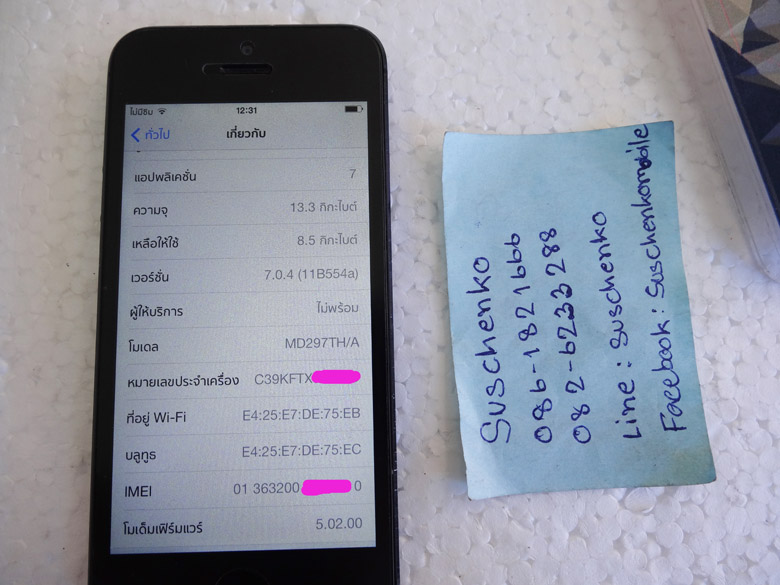 ไม่มีซิม 12:31
ทั่วไป เกี่ยวกับ
แอปพลิเคชั่น 7
ความจุ 13.3 กิกะไบต์
เหลือให้ใช้ 8.5 กิกะไบต์
เวอร์ชั่น 7.0.4 (11B554a)
ผู้ให้บริการ ไม่พร้อม
โมเดล MD297TH/A
หมายเลขประจำเครื่อง C39KFTX
ที่อยู่ Wi-Fi E4:25:E7:DE:75:EB
บลูทูธ E4:25:E7:DE:75:EC
IMEI 01 363200 0
โมเด็มเฟิร์มแวร์ 5.02.00
Suschenko
086-1821666
082-6233288
Line : suschenko
Facebook : Suschenkomobile